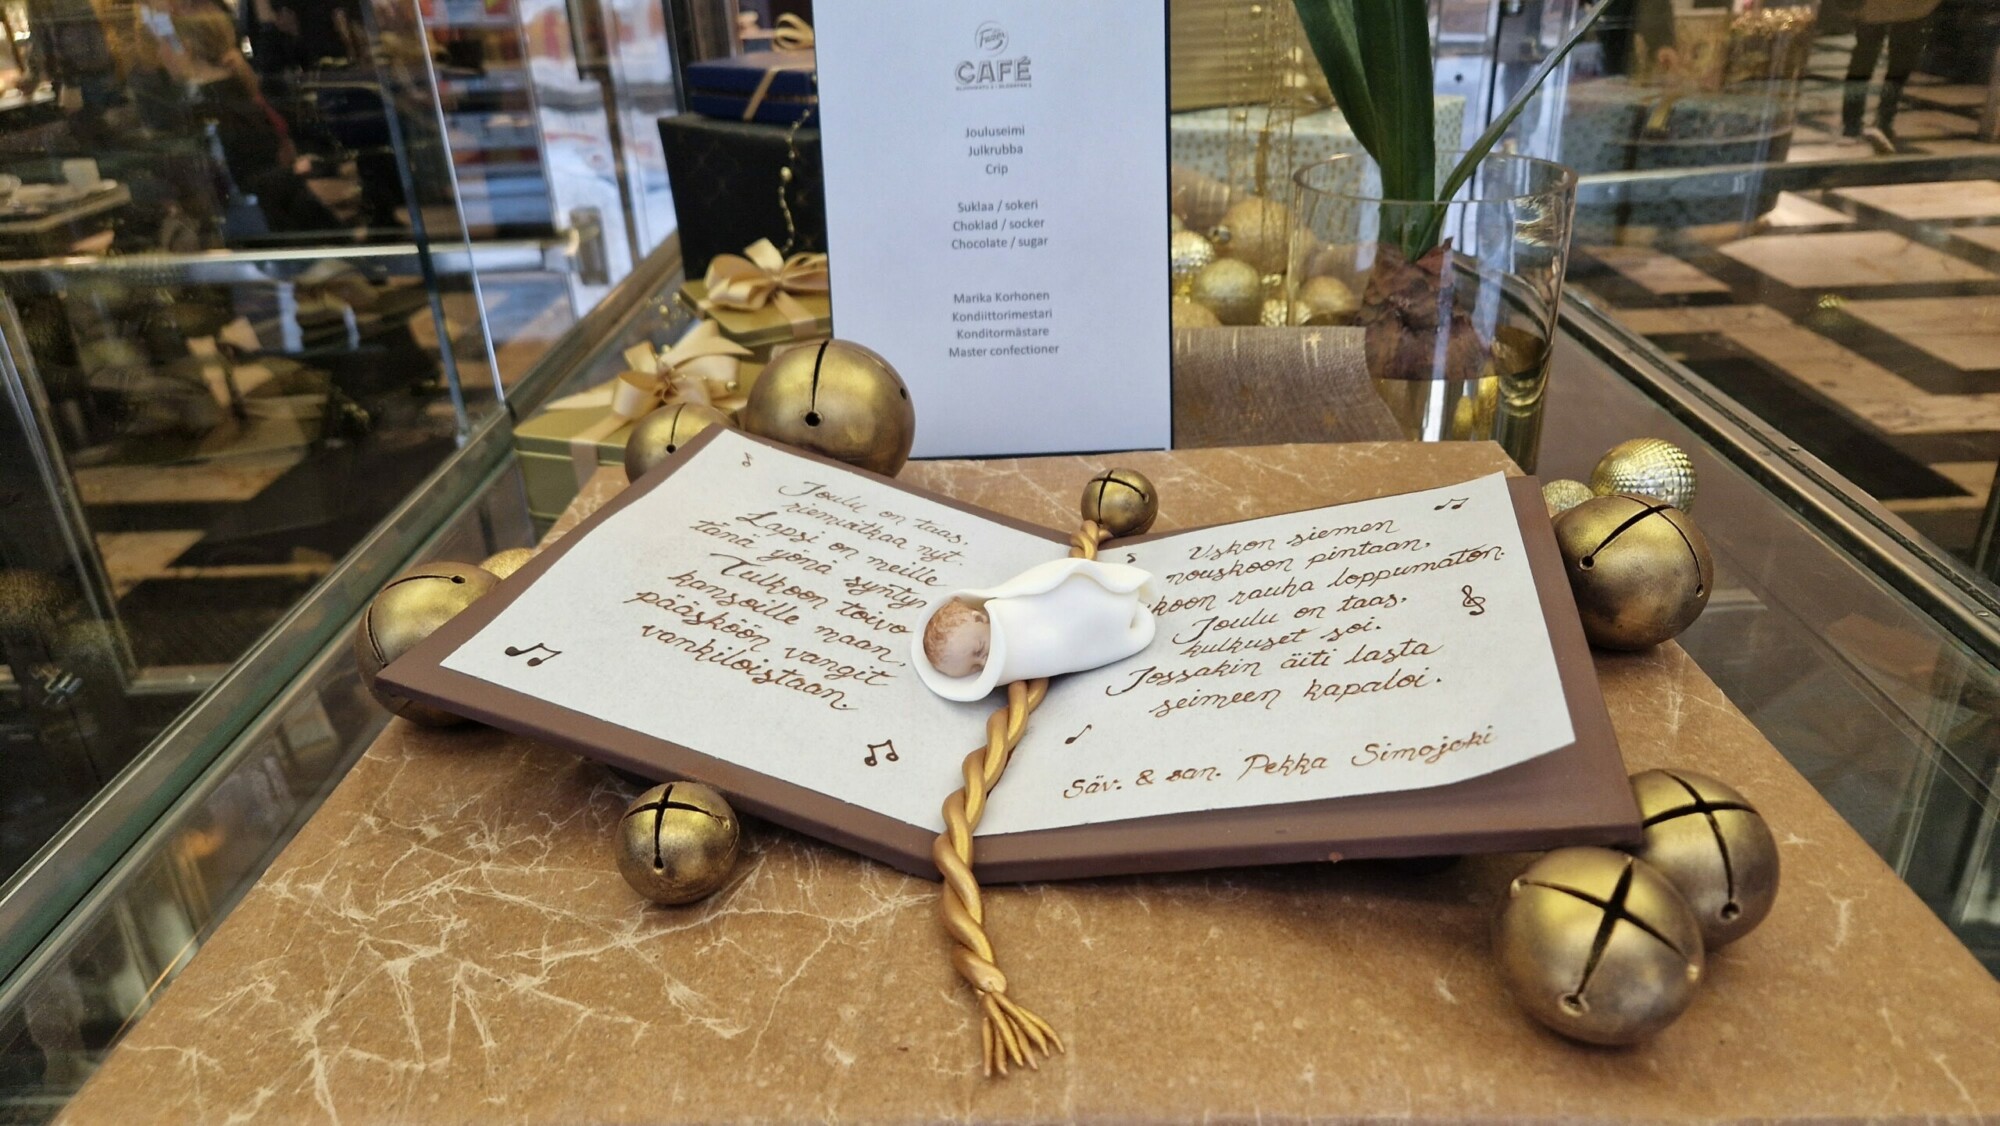 Fazer
CAFÉ
Jouluseimi
Julkrubba
Crip
Suklaa / sokeri
Choklad / socker
Chocolate / sugar
Marika Korhonen
Kondiittorimestari
Konditormästare
Master confectioner
Joulu on taas,
riemuitkaa nyt.
Lapsi on meille
tänä yönä syntyn
Tulkoon toivo
kansoille maan,
pääsköön vangit
vankiloistaan.
Uskon siemen
nouskoon pintaan,
koon rauha loppumaton.
Joulu on taas,
kulkuset soi.
Jossakin äiti lasta
seimeen kapaloi.
Säv. & san. Pekka Simojoki